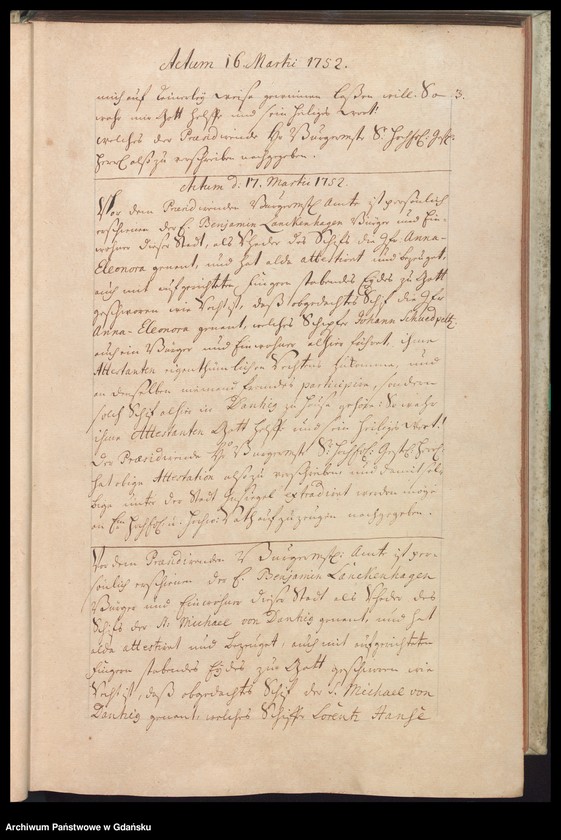 Actum 16 Martii 1752.
3.
mich auf keinerley Weise gewinnen laßen will. So
wahr mir Gott helffe und sein heiliges Wort.
welches der Præsidirende Hr Burgermstr Sr Hochedl: Gestr:
Herrl: also zu verschreiben nachgegeben.
Actum d. 17. Martii 1752.
Vor dem Præsidirenden Burgermstl: Amte ist persönlich
erschienen der E. Benjamin Lanckenhagen Bürger und Ein-
wohner dieser Stadt, als Rheder des Schifs die Jfr. Anna-
Eleonora genant, und hat alda attestiret und bezeuget,
auch mit aufgerichteten Fingern stabendes Eydes zu Gott
geschworen wie Recht ist, daß obgedachtes Schif die Jfr.
Anna-Eleonora genant, welches Schiffer Johann
auch ein Bürger und Einwohner alhier führet, ihme
Attestanten eigenthümlichen Rechtens zukomme, und
an demselben niemand fremdes participire, sondern
solch Schif alhier in Dantzig zu Hause gehöre: So wahr
ihme Attestanten Gott helffe und sein heiliges Wort!
Der Præsidirende Hr Burgermstr Sr Hochedl: Gestr: Herrl:
hat obige Attestation also zu verschreiben und damit
unter der Stadt Insiegel extradiret werden möge
an Ein Hochedl: u. Hochw: Rath aufzuzeugen nachgegeben.
Vor dem Præsidirenden Burgermstl: Amte ist per-
sönlich erschienen der E. Benjamin Lanckenhagen
Bürger und Einwohner dieser Stadt als Rheder des
Schifs der St: Michael von Dantzig genant, und hat
alda attestiret und bezeuget, auch mit aufgerichteten
Fingern stabendes Eydes zu Gott geschworen wie
Recht ist, daß obgedachtes Schif der St. Michael von
Dantzig genant, welches Schiffr Lorentz Hanse
Archiwum Państwowe w Gdańsku